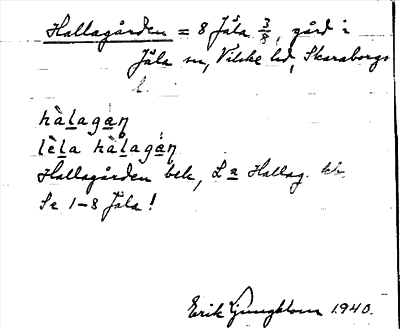 Hallagården = 8 Jäla 3/8, gård i
Jäla sn, Vilske hd, Skaraborgs
l.
hàlagaɳ
lèla hàlagáɳ
Hallagården bel., La Hallag. kb.
Se 1-8 Jäla!
Erik Ljungblom 1940.